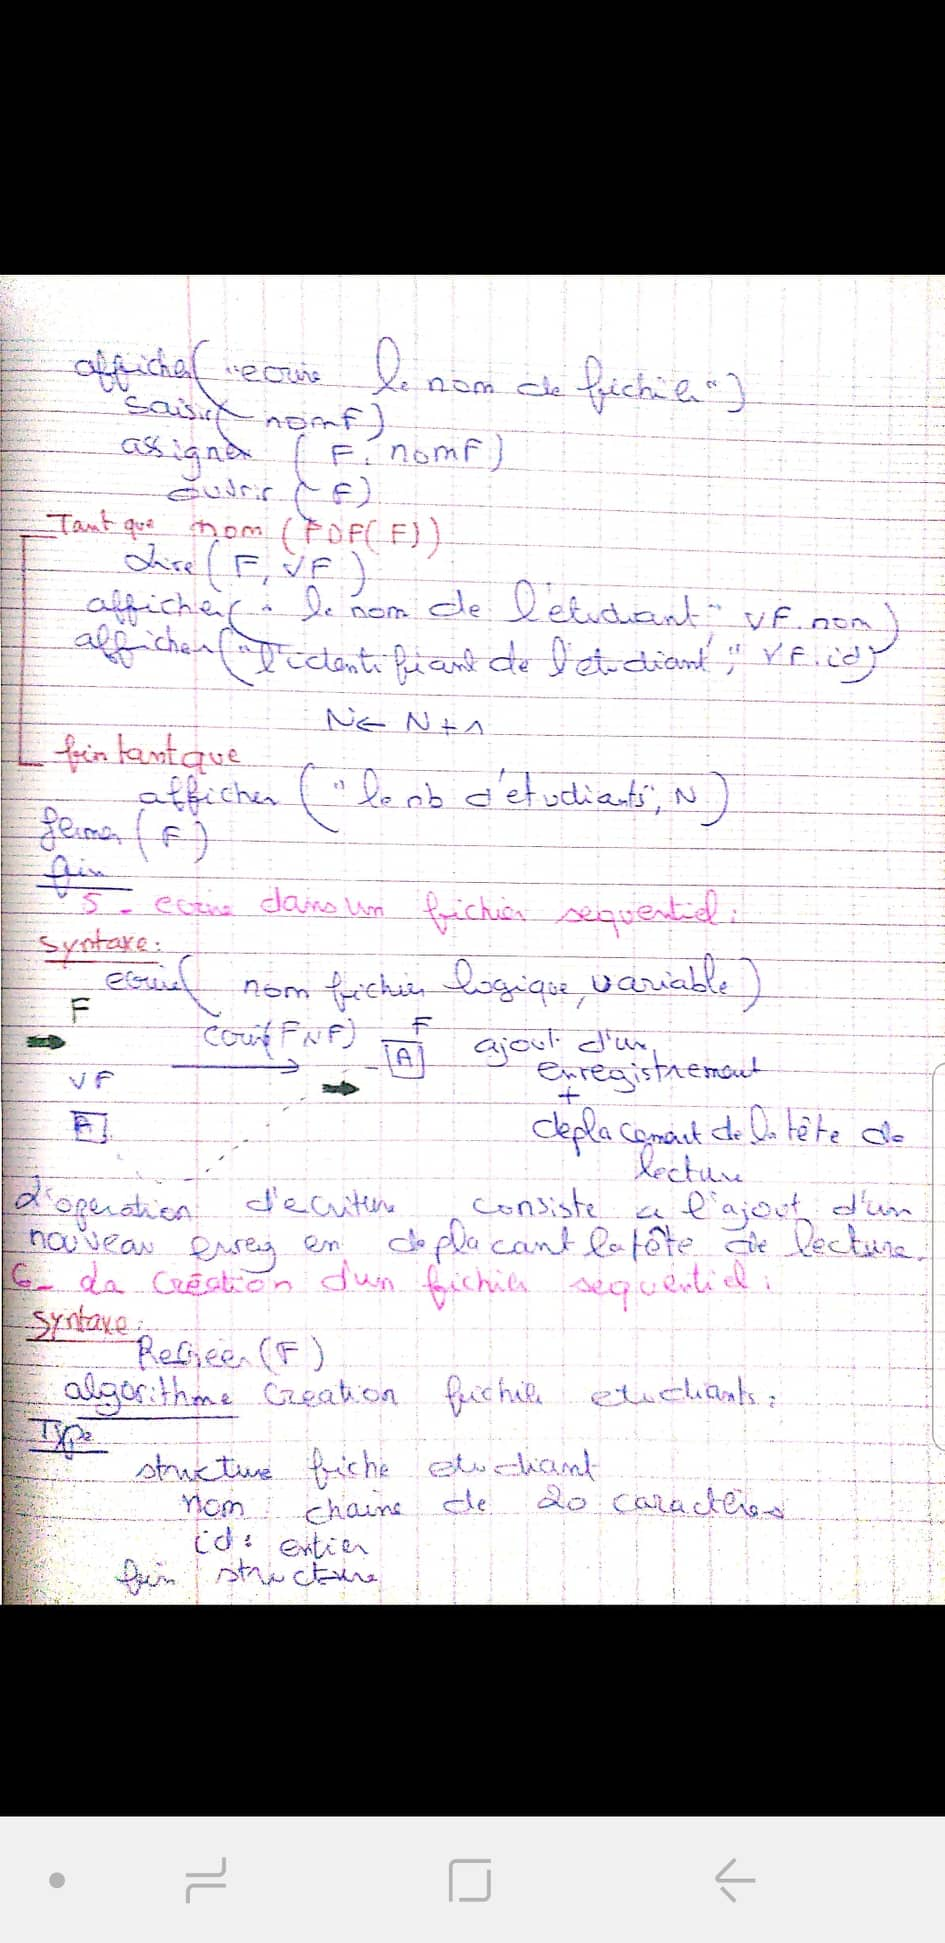 afficher("ecrire le nom de fichier")
saisir(nomF)
assigner (F, nomF)
ouvrir (F)
Tant que nom (FDF(F))
Lire (F, VF)
afficher(" le nom de l'etudiant" VF.nom)
afficher("l'identifiant de l'etudiant", VF.id)
N ← N + 1
fin tantque
afficher ("le nb d'etudiants", N)
fermer (F)
fin
5 - ecrire dans un fichier sequentiel:
syntaxe:
ecrire( nom fichier logique, variable)
F
ecrire(F,VF) F ajout d'un
[A] enregistrement
VF +
[A] deplacement de la tête de
lecture
L'operation d'ecriture consiste a l'ajout d'un
nouveau enreg en deplacant la tête de lecture.
6 - La Création d'un fichier sequentiel:
syntaxe:
(F)
algorithme Creation fichier etudiants:
Type
structure fiche etudiant
nom : chaine de 20 caractères
id : entier
fin structure